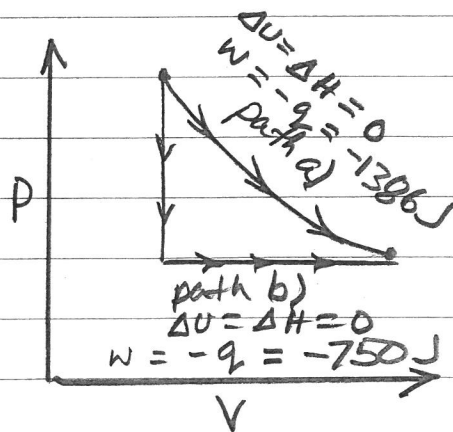 ΔU = ΔH = 0
w = -q = -1386J
path a)
P
path b)
ΔU = ΔH = 0
w = -q = -750 J
V